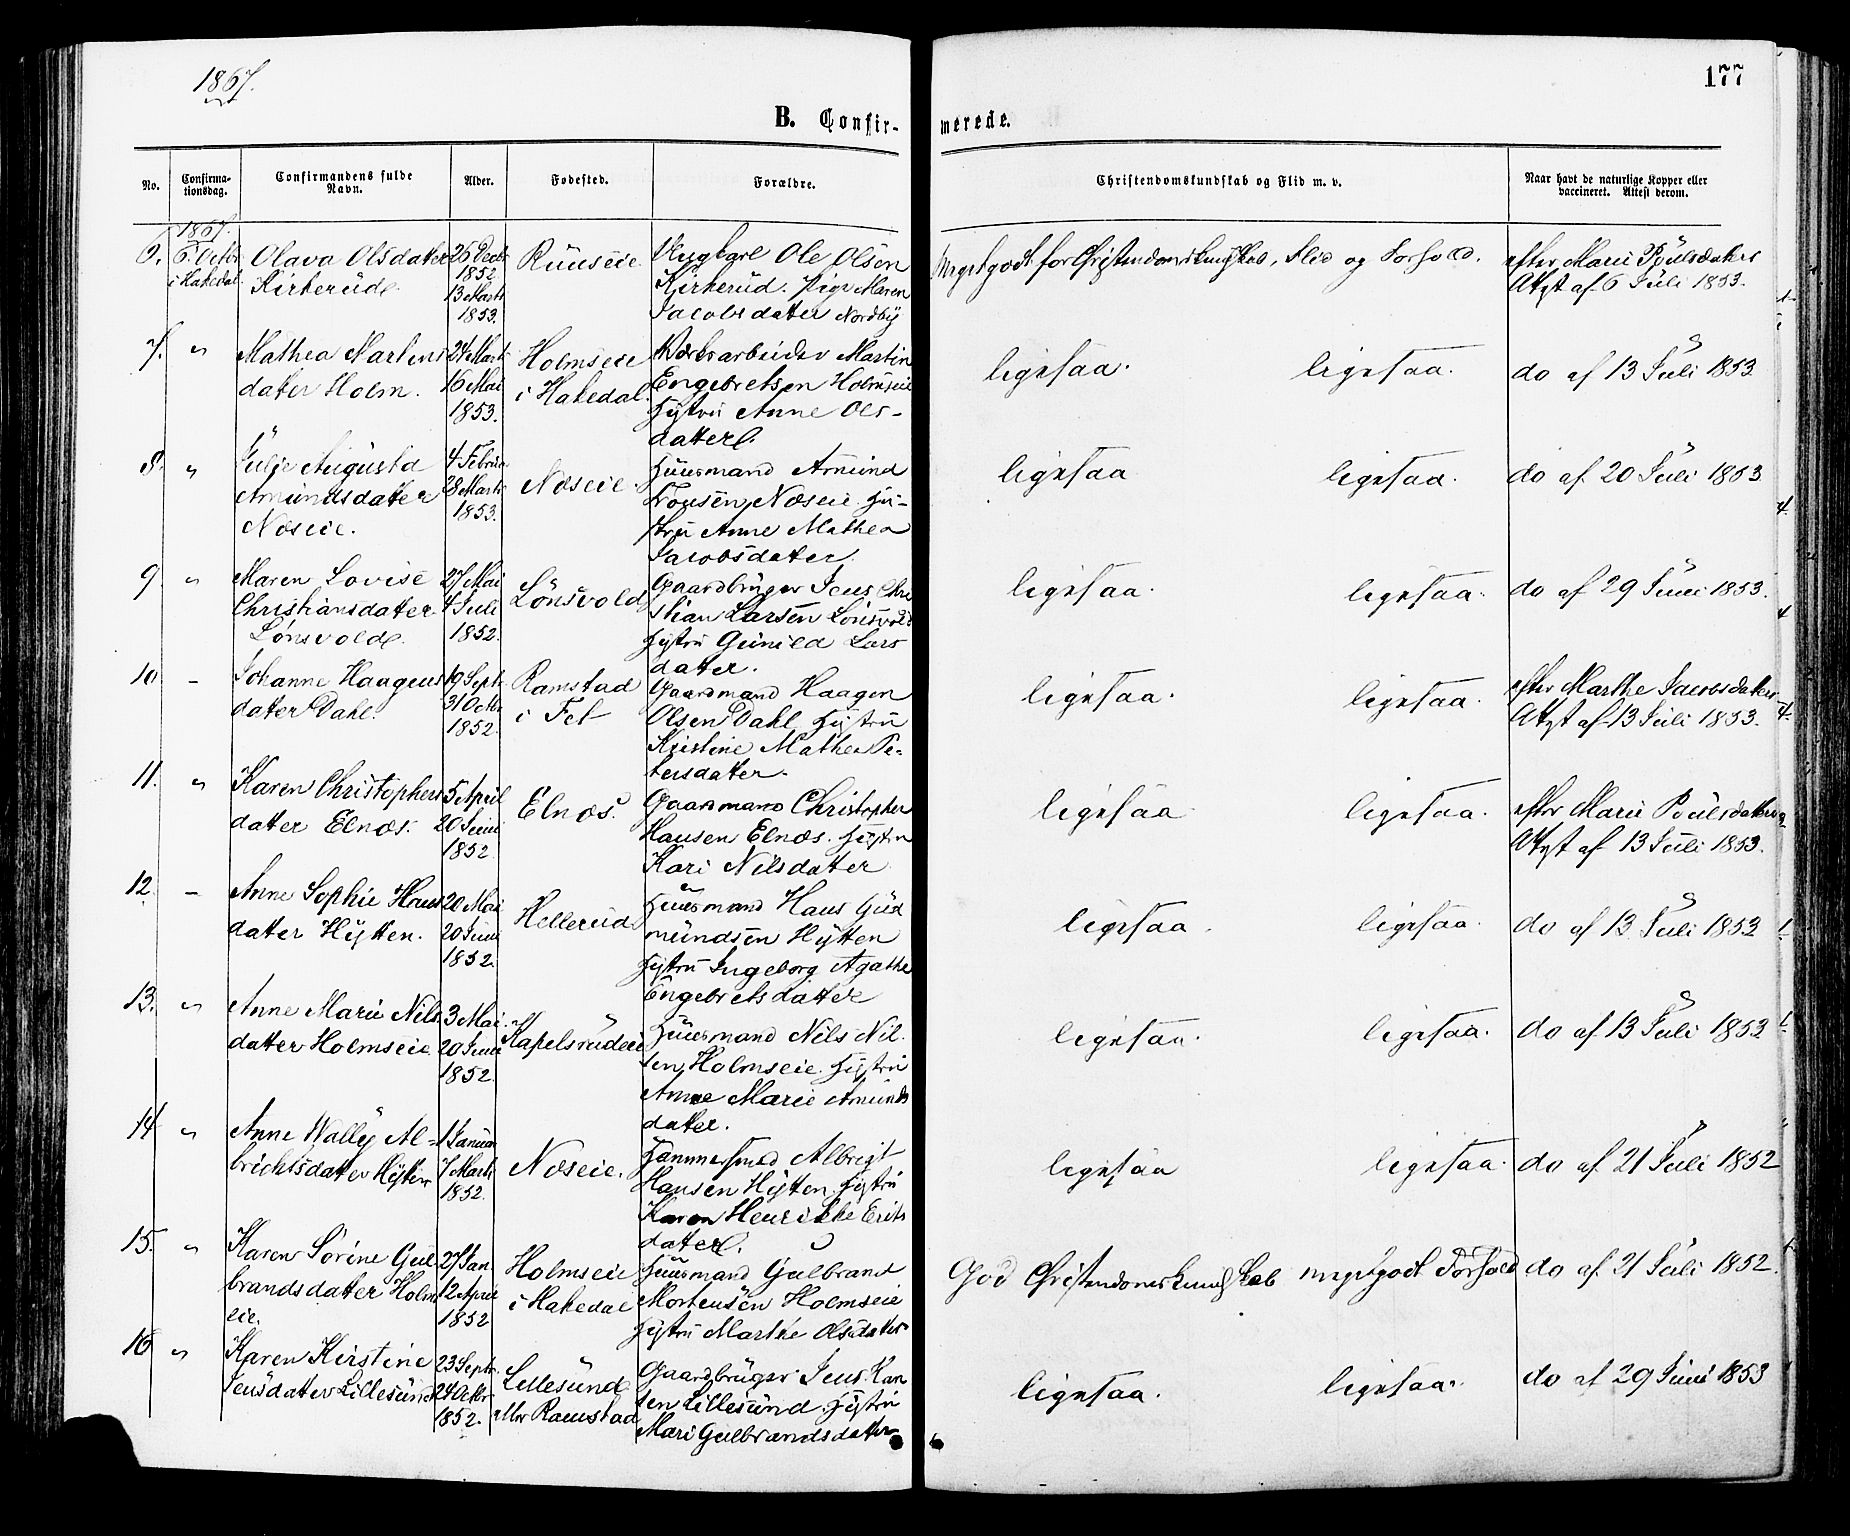 1867.
177
B. Confir-
merede.
No.
Confirma-
tionsdag.
Confirmandens fulde
Navn.
Alder.
Fødested.
Forældre.
Christendomskundskab og Flid m. v.
Naar havt de naturlige Kopper eller
vaccineret. Attest derom.
1867.
6.
6. Octbr
i Hakedal
Olava Olsdatter
Kirkerud
26 Decbr
1852
13 Marts
1853.
Ruuseie
Ungkarl Ole Olsen
Kirkerud. Pige Maren
Jacobsdatter Nordby
Meget godt for Christendomskundskab, Flid og Forhold.
efter Marie Poulsdatters
Attest af 6 Juli 1853.
7. "
Mathea Martins
datter Holm.
24 Marts
16 Mai
1853.
Holmseie
i Hakedal.
Værksarbeider Martin
Engebretsen Holmseie
Hustru Anne Ols-
datter.
ligesaa. ligesaa.
do af 13 Juli 1853
8. "
Julie Augusta
Amundsdatter
Næseie.
4 Februar
28 Marts
1853.
Næseie.
Huusmand Amund
Næseie. Hu-
stru Anne Mathea
Jacobsdatter.
ligesaa ligesaa.
do af 20 Juli 1853
9 "
Maren Lovise
Christiansdatter
Lønsvold.
27 Mai
4 Juli
1852.
Lønsvold
Gaardbruger Jens Chri
stian Larsen Lønsvold
Hustru Gunild Lars
datter.
ligesaa. ligesaa.
do af 29 Juni 1853.
10 -
Johanne Haagens
datter Dahl.
19 Septr
31 Octbr
1852.
Ramstad
i Fet
Gaardmand Haagen
Olsen Dahl, Hustru
Kirstine Mathea Pe-
tersdatter.
ligesaa. ligesaa.
efter Marthe Jacobsdatters
Attest af 13 Juli 1853.
11. "
Karen Christophers
datter Elnæs.
5 April
20 Juni
1852
Elnæs.
Gaardmand Christopher
Hansen Elnæs. Hustru
Kari Nilsdatter
ligesaa ligesaa.
efter Marie Poulsdatters
Attest af 13 Juli 1853.
12. -
Anne Sophie Hans
datter Hytten.
20 Mai
20 Juni
1852.
Hellerud
Huusmand Hans Gud
mundsen Hytten
Hustru Ingeborg Agathe
Engebretsdatter
ligesaa. ligesaa.
do af 13 Juli 1853
13. "
Anne Marie Nils
datter Holmseie.
3 Mai
20 Juni
1852.
Kapelsrudeie
Huusmand Nils Nil-
sen Holmseie. Hustru
Anne Marie Amunds
datter.
ligesaa. ligesaa.
do af 13 Juli 1853
14 "
Anne Wally Al-
brichtsdatter Hytten
1 Januar
7 Marts
1852.
Næseie.
Hammersmed Albrigt
Hansen Hytten, Hustru
Karen Henrikke Eriks
datter.
ligesaa ligesaa.
do af 21 Juli 1852
15. "
Karen Sørine Gul
brandsdatter Holms
eie.
27 Jan
12 April
1852
Holmseie
i Hakedal
Huusmand Gulbrand
Mortensen Holmseie
Hustru Marthe Olsdatter
God Christendomskundskab meget godt Forhold
do af 21 Juli 1852.
16 "
Karen Kirstine
Jensdatter Lillesund
23 Septr
24 Octbr
1852.
Lillesund
Ramstad
Gaardbruger Jens Han
sen Lillesund. Hustru
Mari Gulbrandsdatter
ligesaa. ligesaa.
do af 29 Juni 1853